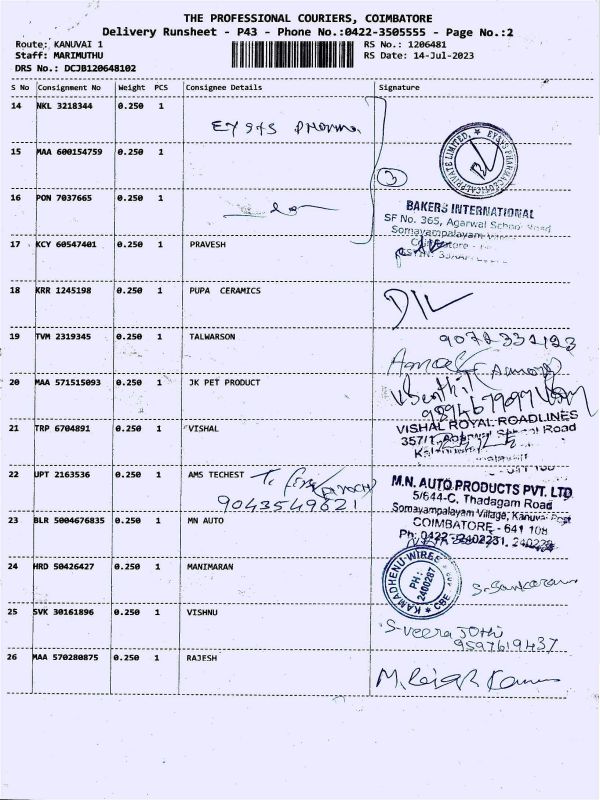 THE PROFESSIONAL COURIERS, COIMBATORE
Delivery Runsheet - P43 - Phone No.:0422-3505555 - Page No.:2
Route: KANUVAI 1 RS No.: 1206481
Staff: MARIMUTHU RS Date: 14-Jul-2023
DRS No.: DCJB120648102
S No Consignment No Weight PCS Consignee Details Signature
14 NKL 3218344 0.250 1
15 MAA 600154759 0.250 1
3
16 PON 7037665 0.250 1
BAKERS INTERNATIONAL
SF No. 365, Agarwal School Road
Somayampalayam
17 KCY 60547401 0.250 1 PRAVESH
18 KRR 1245198 0.250 1 PUPA CERAMICS
19 TVM 2319345 0.250 1 TALWARSON
20 MAA 571515093 0.250 1 JK PET PRODUCT
21 TRP 6704891 0.250 1 VISHAL
VISHAL ROYAL ROADLINES
22 UPT 2163536 0.250 1 AMS TECHEST
9043549621
M.N. AUTO PRODUCTS PVT. LTD
5/644-C, Thadagam Road
Somayampalayam Village, Kanuvai Post
23 BLR 5004676835 0.250 1 MN AUTO
COIMBATORE - 641 108
Ph: 0422-2402231,
24 HRD 50426427 0.250 1 MANIMARAN
KAMADHENU WIREE
PH: 2400287
CBE
S. Sankaran
25 SVK 30161896 0.250 1 VISHNU
S-Veera Jothi
9597619437
26 MAA 570280875 0.250 1 RAJESH